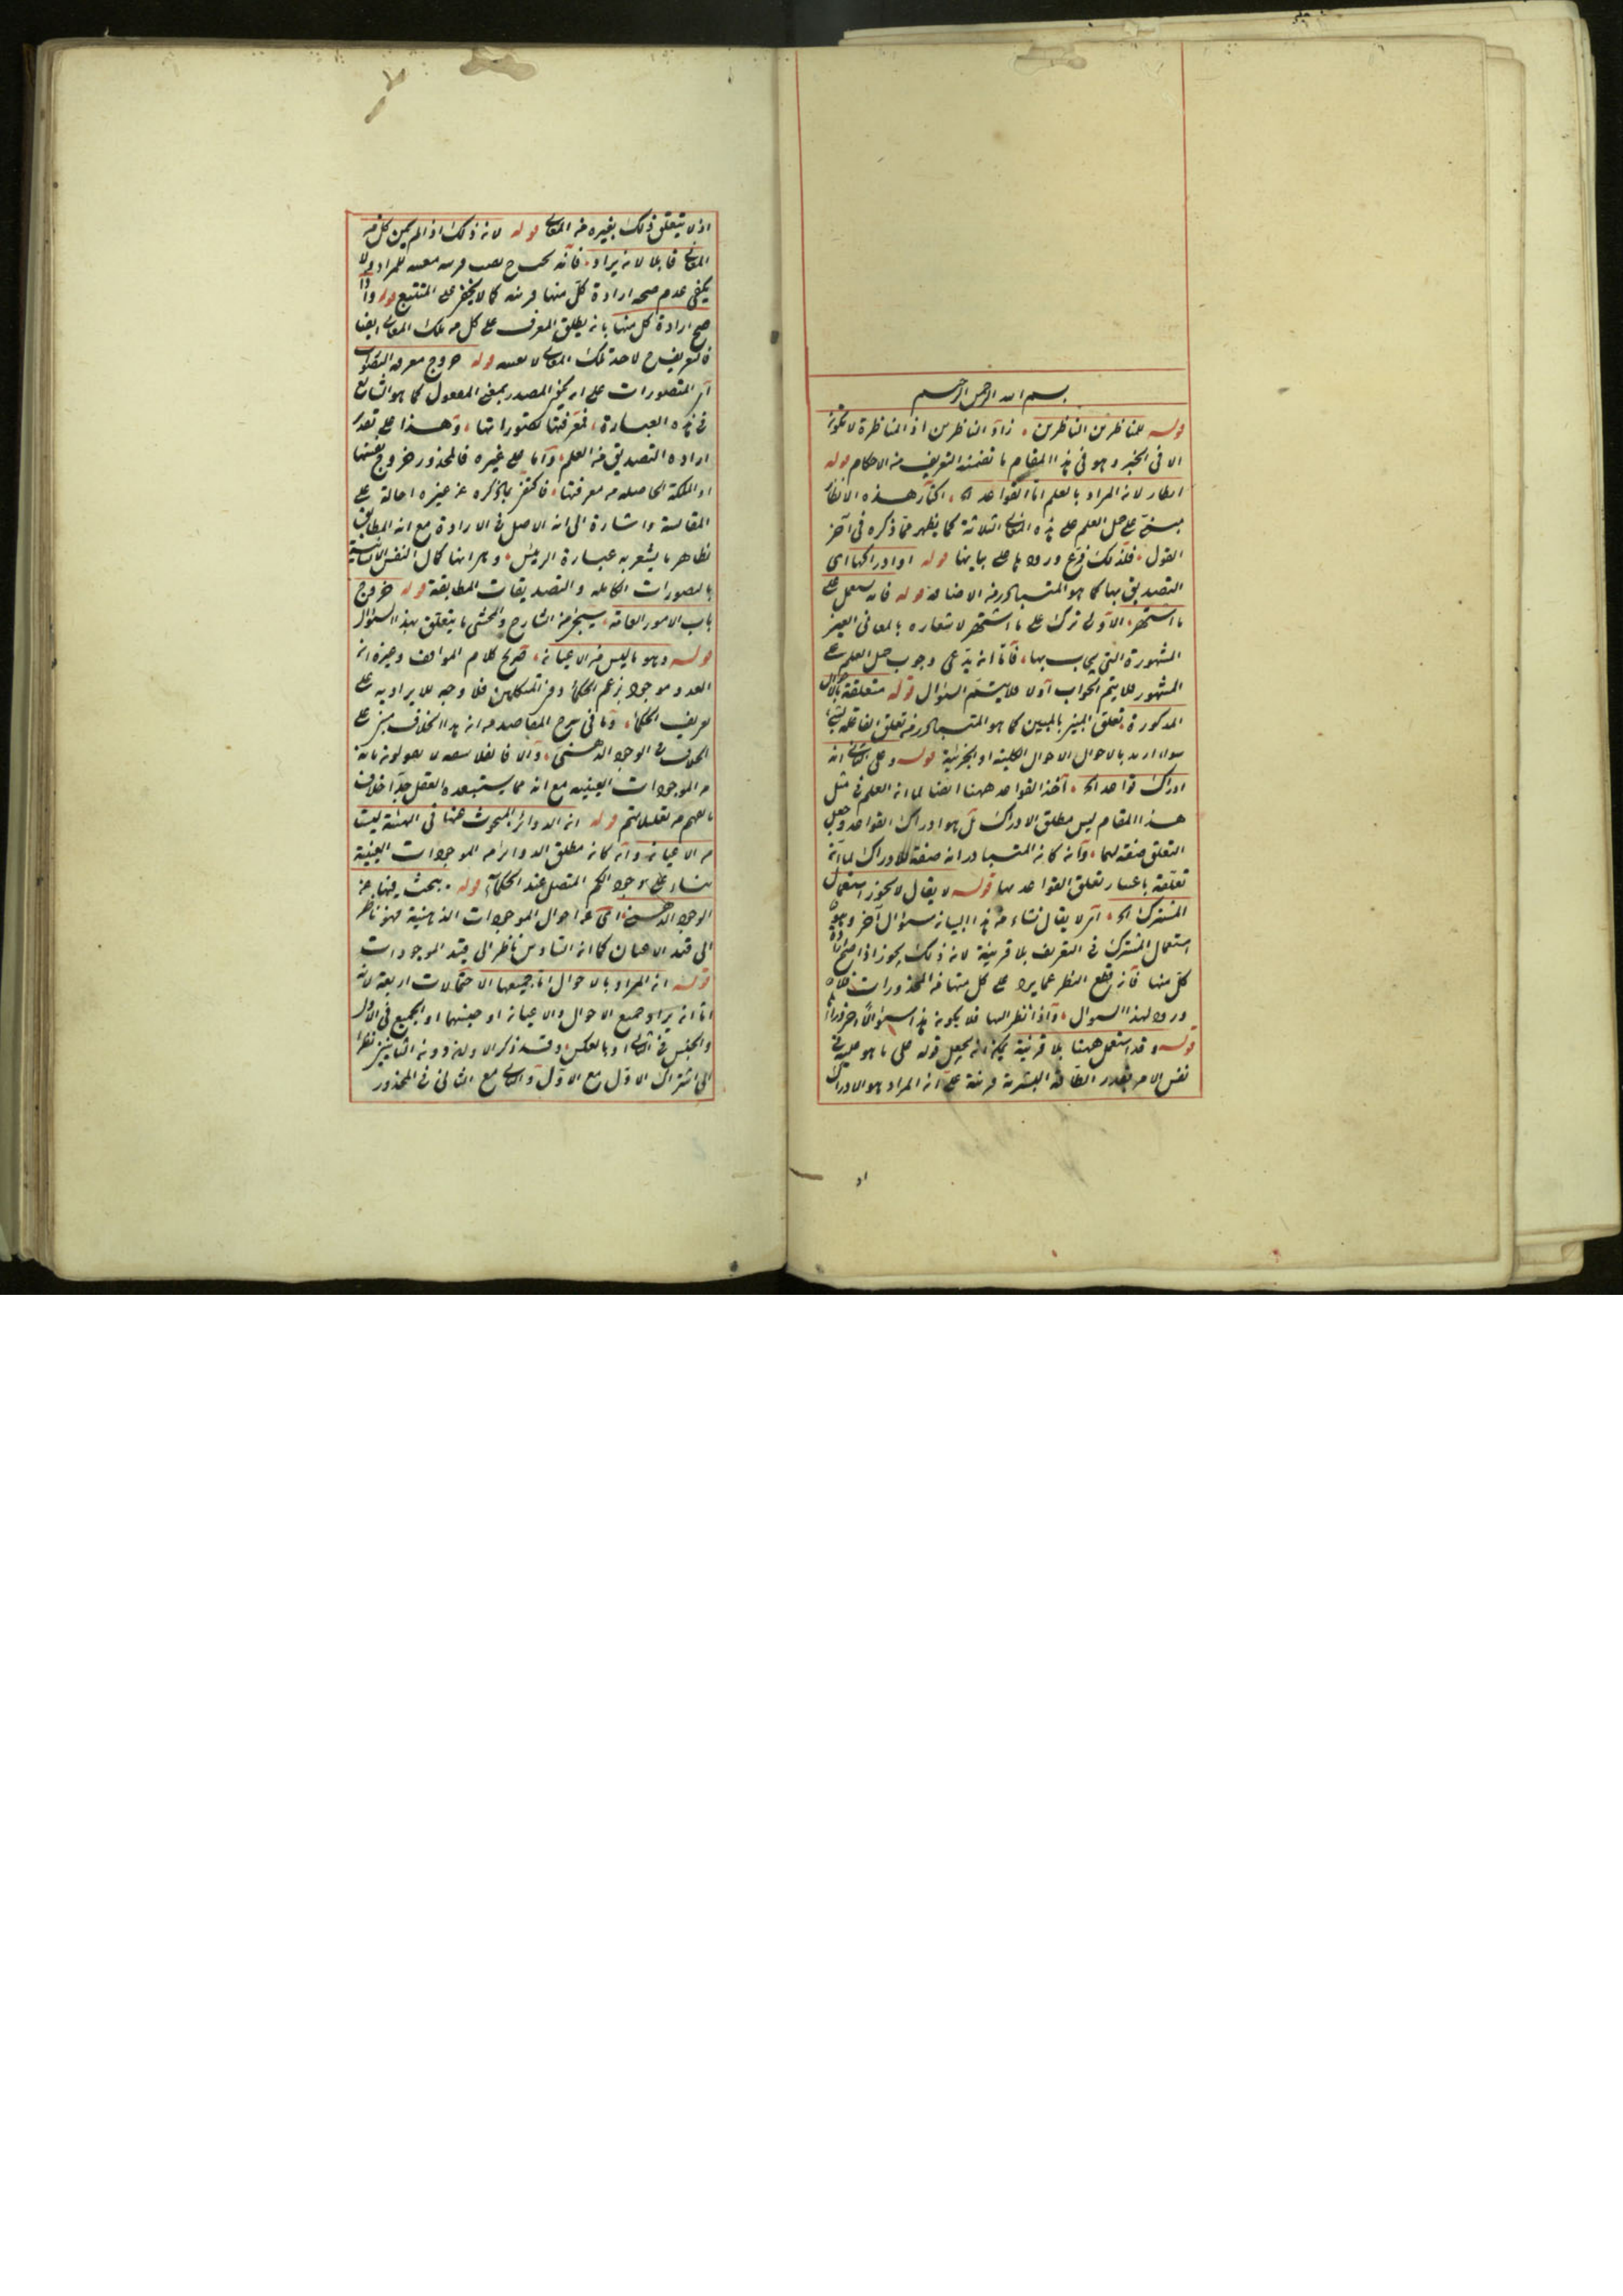 بسم الله الرحمن الرحيم
قوله للمناظرين الناظرين زاد الناظرين اذ المناظرة لا تكون
الا في الخبر وهو في هذا المقام ما تضمنه التعريف من الاحكام قوله
لان المراد بالعلم اما القواعد الخ هذه الانظار
على حمل العلم على هذه المعاني الثلاثة كما يظهر مما ذكره في آخر
القول فلذلك فرع ورودها على بيانها قوله او ادراكها اى
التصديق بها كما هو المتبادر من الاضافة قوله فانه
ما اشتهر الاولى ترك على ما اشتهر لاشعاره بالمعاني الغير
المشهورة التي بها فاما ان يدعى وجوب حمل العلم على
المشهور ليتم الجواب اولا فلا يتم السؤال قوله متعلقة بالاحوال
المذكورة تعلق المبين بالمبين كما هو المتبادر من تعلق
بالاحوال الاحوال الكلية او الجزئية قوله وعلى الثاني انه
ادراك قواعد الخ اخذ القواعد ههنا ايضا لما ان العلم في مثل
هذا المقام ليس مطلق الادراك بل هو ادراك القواعد وجعل
التعلق صفة لهما وان كان المتبادر انه صفة للادراك لما ان
تعلقه باعتبار تعلق القواعد بها قوله لا يقال لا يجوز استعمال
المشترك الخ اى لا يقال نشاء من هذا البيان سؤال آخر وهو
استعمال المشترك في التعريف بلا قرينة لان ذلك يجوز اذا صح ارادة
كل منها فان قطع النظر عما يرد على كل منها من المحذورات
ورود لهذا السوال واذا نظر اليها فلا يكون هذا سؤالا آخر
قوله وقد استعمل ههنا بلا قرينة يمكن ان يجعل قوله على ما هو عليه في
نفس الامر بقدر الطاقة البشرية قرينة على ان المراد هو الادراك
اذ
اذ لا يتعلق ذلك بغيره من المعاني قوله لان ذلك اذا لم يكن كل من
المعاني قابلا لان يراد فانه نصب قرينة معينة للمراد ولا
يكفي عدم صحة ارادة كل منها قرينة كما لا يخفى على المتتبع قوله واذا
صح ارادة كل منها بان يطلق المعرف على كل من تلك المعاني ايضا
فالتعريف لاحد تلك المعاني لا بعينه قوله خروج معرفة التصورات
اى المتصورات على ان يكون المصدر بمعنى المفعول كما هو الشايع
في هذه العبارة فمعرفتها تصوراتها وهذا على تقدير
ارادة التصديق من العلم واما على غيره فالمحذور خروج بعينها
او الملكة الحاصلة من معرفتها فاكتفى بذكره عن غيره احالة على
المقايسة واشارة الى انه الاصل في الارادة مع انه المطابق
لظاهر ما يشعر به عبارة الرئيس كمال النفس الانسانية
بالتصورات الكاملة والتصديقات المطابقة قوله خروج
باب الامور العامة سيجئ من الشارح والمحشى ما يتعلق بهذا السؤال
قوله وهو ما ليس من الاعيان صريح كلام المواقف وغيره ان
العدد موجود بزعم الحكماء دون المتكلمين فلا وجه للايراد به على
تعريف الحكماء وما في شرح المقاصد من ان هذا الخلاف مبنى على
الخلاف في الوجود الذهنى والا فالفلاسفة لا يقولون بانه
من الموجودات العينية مع انه مما يستبعده العقل جدا خلاف
ما فهم من تعليلاتهم قوله ان الدوائر المبحوث عنها في الهيئة ليست
من الاعيان وان كان مطلق الدوائر من الموجودات العينية
بناء على وجود الكم المتصل عند الحكماء قوله يبحث فيها عن
الوجود الذهنى اى عن احوال الموجودات الذهنية فهو ناظر
الى قيد الاعيان كما ان السادس ناظر الى قيد الموجودات
قوله ان المراد بالاحوال اما جميعها الاحتمالات اربعة لانه
اما ان يراد جميع الاحوال والاعيان او جنسهما او الجميع في الاول
والجنس في الثاني او بالعكس وقد ذكر الاولين دون الثانيين نظرا
الى اشتراك الاول مع الاول والثاني مع الثاني في المحذور